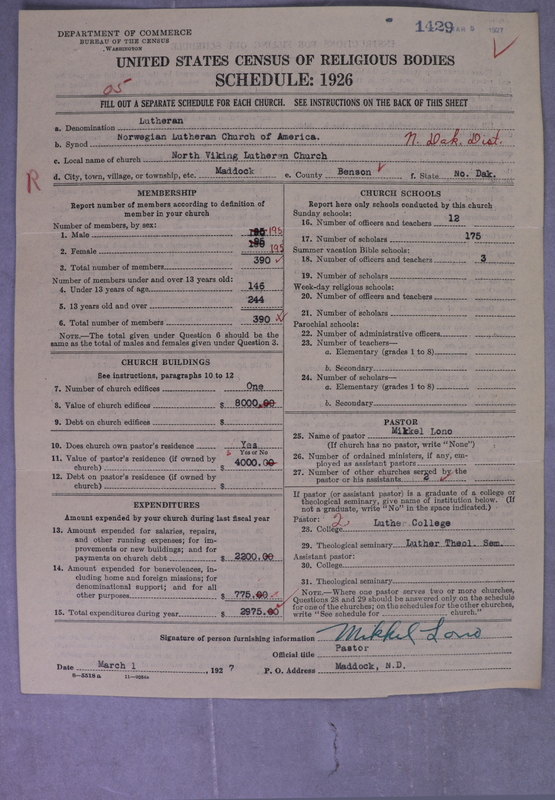 DEPARTMENT OF COMMERCE
BUREAU OF THE CENSUS
WASHINGTON
1429 MAR 9 1927
UNITED STATES CENSUS OF RELIGIOUS BODIES
SCHEDULE: 1926
05
FILL OUT A SEPARATE SCHEDULE FOR EACH CHURCH. SEE INSTRUCTIONS ON THE BACK OF THIS SHEET
a. Denomination Lutheran
b. Synod Norwegian Lutheran Church of America. N. Dak. Dist.
c. Local name of church North Viking Lutheran Church
R
d. City, town, village, or township, etc. Maddock e. County Benson f. State No. Dak.
MEMBERSHIP
Report number of members according to definition of
member in your church
Number of members, by sex:
1. Male 195 195
2. Female 195 195
3. Total number of members 390
Number of members under and over 13 years old:
4. Under 13 years of age 146
5. 13 years old and over 244
6. Total number of members 390
NOTE.—The total given under Question 6 should be the
same as the total of males and females given under Question 3.
CHURCH BUILDINGS
See instructions, paragraphs 10 to 12
7. Number of church edifices One
8. Value of church edifices $ 8000.00
9. Debt on church edifices $
10. Does church own pastor's residence Yes
Yes or No
11. Value of pastor's residence (if owned by
church) $ 4000.00
12. Debt on pastor's residence (if owned by
church) $
EXPENDITURES
Amount expended by your church during last fiscal year
13. Amount expended for salaries, repairs,
and other running expenses; for im-
provements or new buildings; and for
payments on church debt $ 2200.00
14. Amount expended for benevolences, in-
cluding home and foreign missions; for
denominational support; and for all
other purposes $ 775.00
15. Total expenditures during year $ 2975.00
CHURCH SCHOOLS
Report here only schools conducted by this church
Sunday schools:
16. Number of officers and teachers 12
17. Number of scholars 175
Summer vacation Bible schools:
18. Number of officers and teachers 3
19. Number of scholars
Week-day religious schools:
20. Number of officers and teachers
21. Number of scholars
Parochial schools:
22. Number of administrative officers
23. Number of teachers—
a. Elementary (grades 1 to 8)
b. Secondary
24. Number of scholars—
a. Elementary (grades 1 to 8)
b. Secondary
PASTOR
25. Name of pastor Mikkel Lono
(If church has no pastor, write "None")
26. Number of ordained ministers, if any, em-
ployed as assistant pastors
27. Number of other churches served by the
pastor or his assistants 2
If pastor (or assistant pastor) is a graduate of a college or
theological seminary, give name of institution below. (If
not a graduate, write "No" in the space indicated.)
Pastor: 2
28. College Luther College
29. Theological seminary Luther Theol. Sem.
Assistant pastor:
30. College
31. Theological seminary
NOTE.—Where one pastor serves two or more churches,
Questions 28 and 29 should be answered only on the schedule
for one of the churches; on the schedules for the other churches,
write "See schedule for church."
Signature of person furnishing information Mikkel Lono
Official title Pastor
Date March 1, 1927 P. O. Address Maddock, N.D.